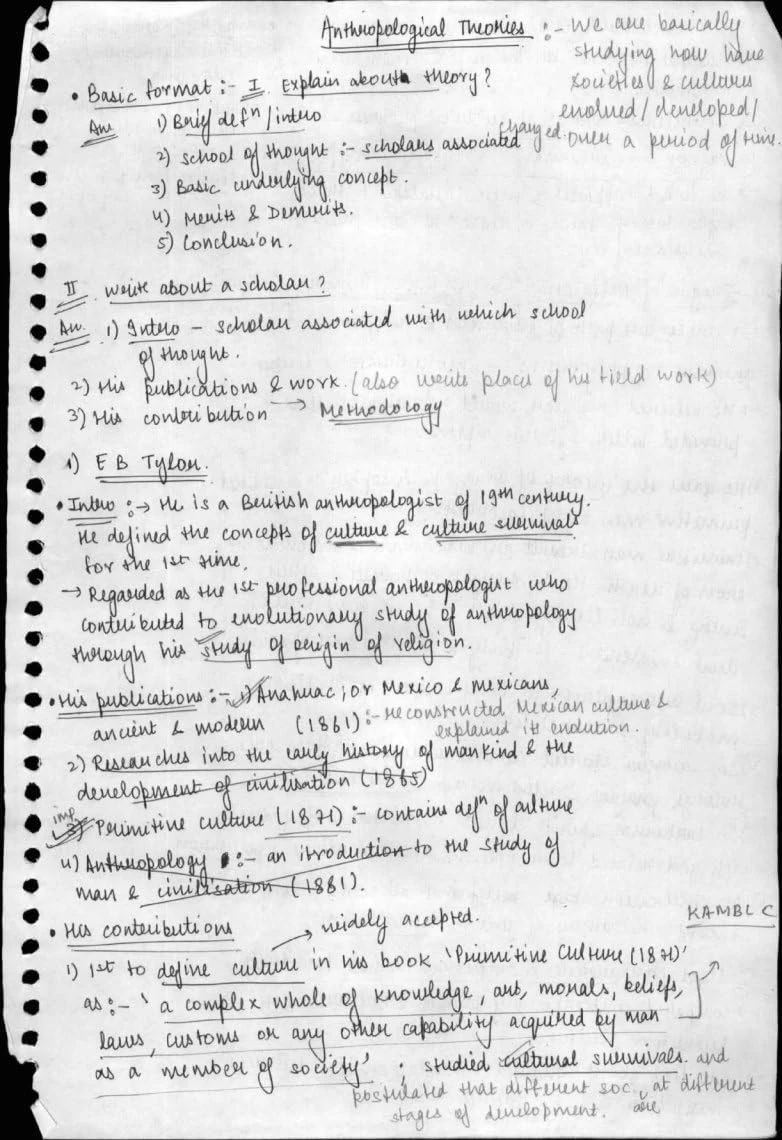 Anthropological Theories :- We are basically
studying how have
societies & cultures
evolved / developed /
changed over a period of time.
• Basic format :- I Explain about theory?
Ans 1) Brief defn / intro
2) School of thought :- scholars associated
3) Basic underlying concept.
4) Merits & Demerits.
5) Conclusion.
II write about a scholar?
An. 1) Intro - scholar associated with which school
of thought.
2) His publications & work. (also write places of his field work)
3) His contribution → Methodology
1) E B Tylor.
• Intro :→ He is a British anthropologist of 19th century.
He defined the concepts of culture & culture survivals
for the 1st time.
→ Regarded as the 1st professional anthropologist who
contributed to evolutionary study of anthropology
through his study of origin of religion.
• His publications :- 1) Anahuac ; or Mexico & mexicans,
ancient & modern (1861) :- reconstructed Mexican culture &
explained its evolution.
2) Researches into the early history of mankind & the
development of civilisation (1865)
imp 3) Primitive culture (1871) :- contains defn of culture
4) Anthropology :- an itroduction to the study of
man & civilisation (1881).
KAMBL C
• His contributions → widely accepted.
1) 1st to define culture in his book 'Primitive Culture (1871)'
as :- 'a complex whole of knowledge, art, morals, beliefs,
laws, customs or any other capability acquired by man
as a member of society' ; studied cultural survivals and
postulated that different soc. are at different
stages of development.